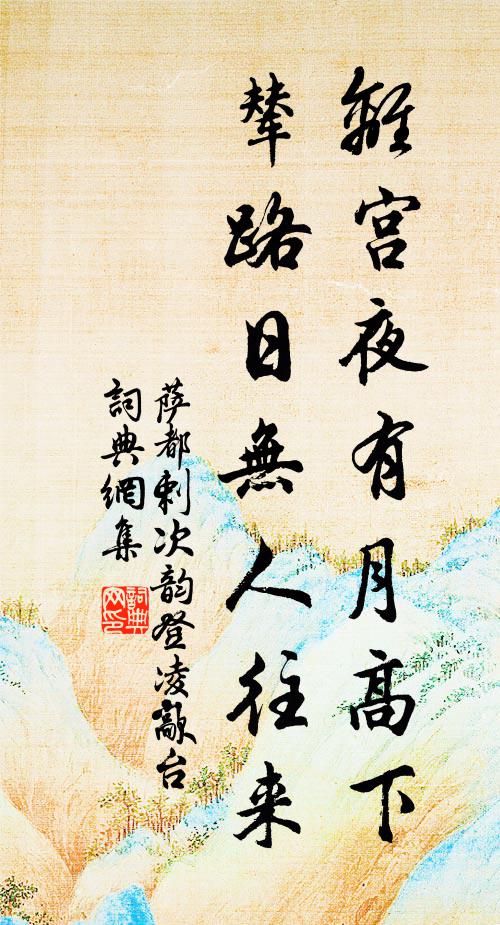 離宮夜有月高下
輦路日無人往来
萨都剌次韵登凌歊台
詞典網集
詞典网印